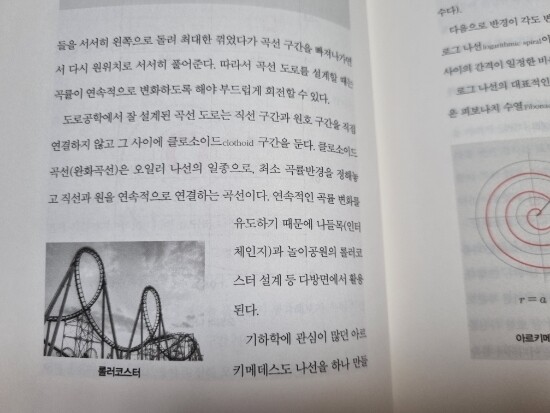 들을 서서히 왼쪽으로 돌려 최대한 꺾었다가 곡선 구간을 빠져나가면
서 다시 원위치로 서서히 풀어준다. 따라서 곡선 도로를 설계할 때는
곡률이 연속적으로 변화하도록 해야 부드럽게 회전할 수 있다.
도로공학에서 잘 설계된 곡선 도로는 직선 구간과 원호 구간을 직접
연결하지 않고 그 사이에 클로소이드clothoid 구간을 둔다. 클로소이드
곡선(완화곡선)은 오일러 나선의 일종으로, 최소 곡률반경을 정해놓
고 직선과 원을 연속적으로 연결하는 곡선이다. 연속적인 곡률 변화를
유도하기 때문에 나들목(인터
체인지)과 놀이공원의 롤러코
스터 설계 등 다방면에서 활용
된다.
기하학에 관심이 많던 아르
키메데스도 나선을 하나 만들
롤러코스터
수다).
다음으로 반경이 각도 변
로그 나선logarithmic spiral이
사이의 간격이 일정한 비
로그 나선의 대표적인
은 피보나치 수열
r = a
아르키메